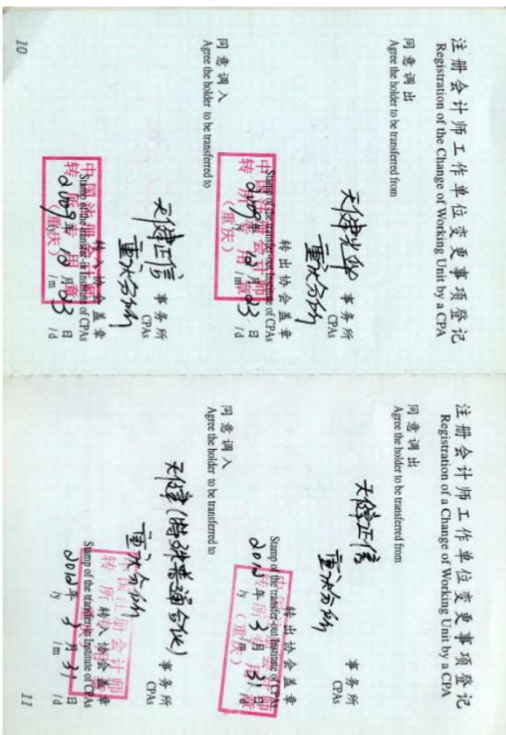 注册会计师工作单位变更事项登记
Registration of the Change of Working Unit by a CPA
同意调出
Agree the holder to be transferred from
天健光华 事务所
重庆分所 CPAs
转出协会盖章
Stamp of the transfer-out Institute of CPAs
中国注册会计师
转所专用章
(重庆)
2009年 12月 23日
/y /m /d
同意调入
Agree the holder to be transferred to
天健正信 事务所
重庆分所 CPAs
转入协会盖章
Stamp of the transfer-in Institute of CPAs
中国注册会计师
转所专用章
(重庆)
2009年 12月 23日
/y /m /d
10
注册会计师工作单位变更事项登记
Registration of a Change of Working Unit by a CPA
同意调出
Agree the holder to be transferred from
天健正信 事务所
重庆分所 CPAs
转出协会盖章
Stamp of the transfer-out Institute of CPAs
(重庆)
2012年 3月 31日
/y /m /d
同意调入
Agree the holder to be transferred to
天健(特殊普通合伙) 事务所
重庆分所 CPAs
转入协会盖章
Stamp of the transfer-in Institute of CPAs
2012年 3月 31日
/y /m /d
11